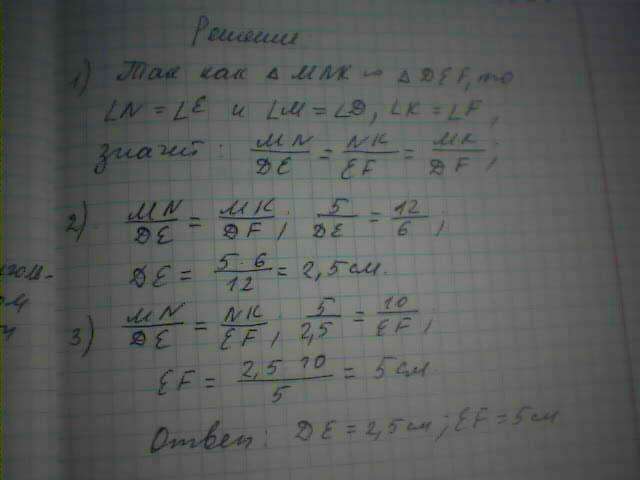 Решение
1) Так как △ MNK ∾ △ DEF, то
∠N = ∠E и ∠M = ∠D, ∠K = ∠F,
значит: MN/DE = NK/EF = MK/DF;
2) MN/DE = MK/DF; 5/DE = 12/6;
DE = 5·6/12 = 2,5 см.
3) MN/DE = NK/EF; 5/2,5 = 10/EF;
EF = 2,5·10/5 = 5 см.
Ответ: DE = 2,5 см; EF = 5 см